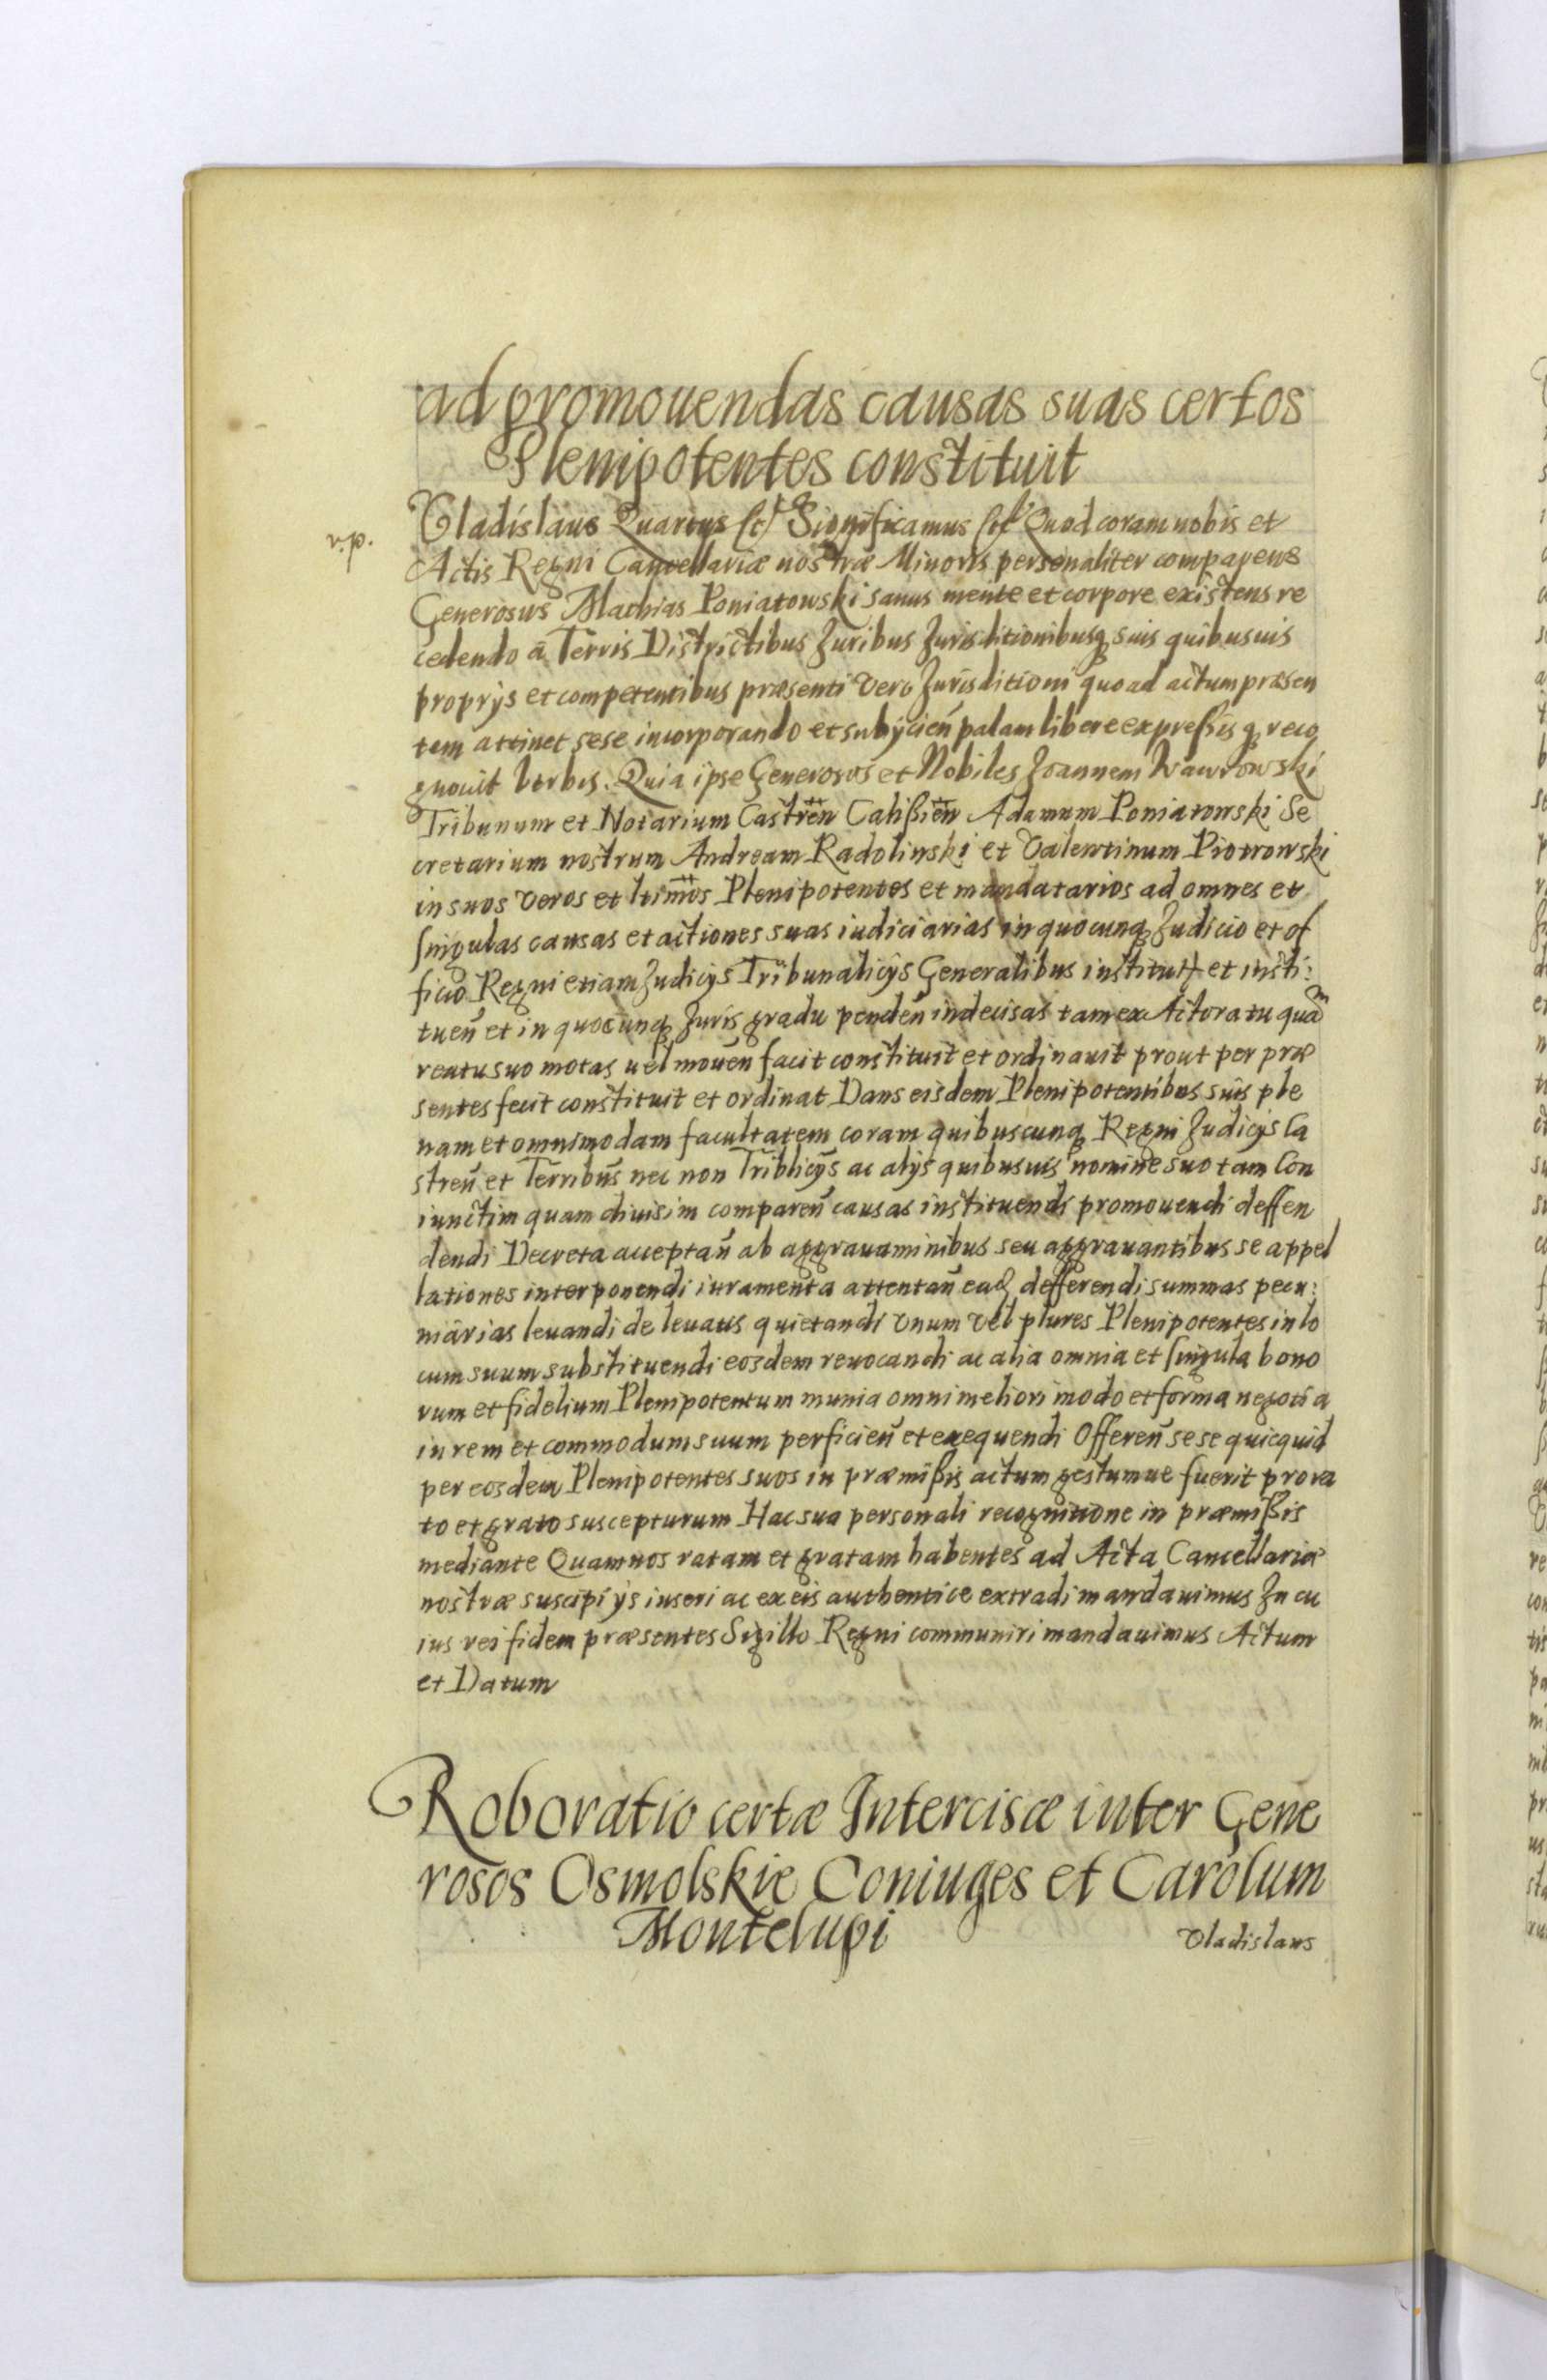 ad promouendas causas suas certos
Plenipotentes constituit
v.p.
Vladislaus Quartus etc Significamus etc Quod coram nobis et
Actis Regni Cancellariæ nostræ Minoris personaliter comparens
Generosus Mathias Poniatowski sanus mente et corpore existens re
cedendo à Terris Districtibus Juribus Jurisditionibusq suis quibusuis
proprÿs et competentibus præsenti vero Jurisditioni quo ad actum præsen
tem attinet sese incorporando et subÿcien̄ palam libere expreßis q reco
gnouit verbis. Quia ipse Generosos et Nobiles Joannem Wawrowski
Tribunum et Notarium Castren̄ Calißien̄ Adamum Poniatowski Se
cretarium nostrum Andream Radolinski et Valentinum Piotrowski
in suos veros et ltimos Plenipotentes et mandatarios ad omnes et
singulas causas et actiones suas iudiciarias in quocunq Judicio et of
ficio Regni etiam Judicÿs Tribunalicÿs Generalibus institut et insti:
tuen̄ et in quocunq Juris gradu penden̄ indecisas tam ex Actoratu quam
reatu suo motas uel mouen̄ facit constituit et ordinauit prout per præ
sentes fecit constituit et ordinat Dans eisdem Plenipotentibus suis ple
nam et omnimodam facultatem coram quibuscunq Regni Judicÿs Ca
stren̄ et Terribus̄ nec non Triblicÿs ac alÿs quibusuis nomine suo tam Con
iunctim quam diuisim comparen̄ causas instituendi promouendi deffen
dendi Decreta acceptan̄ ab aggrauaminibus seu aggrauantibus se appel
lationes interponendi iuramenta attentan̄ eaq defferendi summas pecu:
niarias leuandi de leuatis quietandi vnum vel plures Plenipotentes in lo
cum suum substituendi eosdem reuocandi ac alia omnia et singula bono
rum et fidelium Plenipotentum munia omni meliori modo et forma negotia
in rem et commodum suum perficien̄ et exequendi Offeren̄ sese quicquid
per eosdem Plenipotentes suos in præmißis actum gestumue fuerit pro ra
to et grato suscepturum Hac sua personali recognitione in præmißis
mediante Quam nos ratam et gratam habentes ad Acta Cancellariæ
nostræ suscipi ÿs inseri ac ex eis authentice extradi mandauimus In cu
ius rei fidem præsentes Sigillo Regni communiri mandauimus Actum
et Datum
Roboratio certæ Intercisæ inter Gene
rosos Osmolskie Coniuges et Carolum
Montelupi
Vladislaus